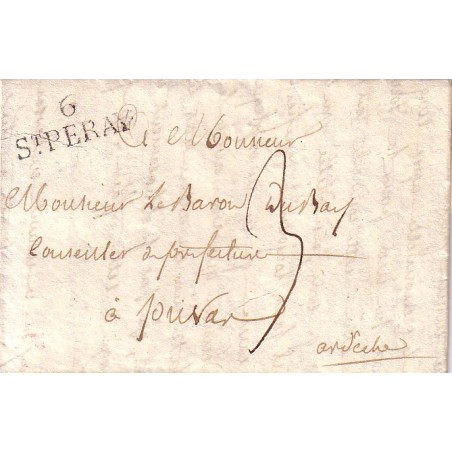 6
ST PERAY
A Monsieur
Monsieur Le Baron DuBay
Conseiller de préfecture
3
à privas
ardeche